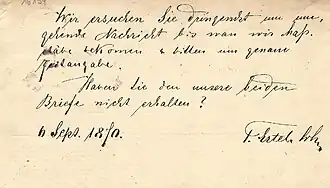 Wir ersuchen Sie dringendst um um-
gehende Nachricht bis wan wir Maß-
stäbe bekommen & bitten um genaue
Zeitangabe.
Haben Sie den unsere beiden
Briefe nicht erhalten?
6 Sept. 1870.
T. Ertel